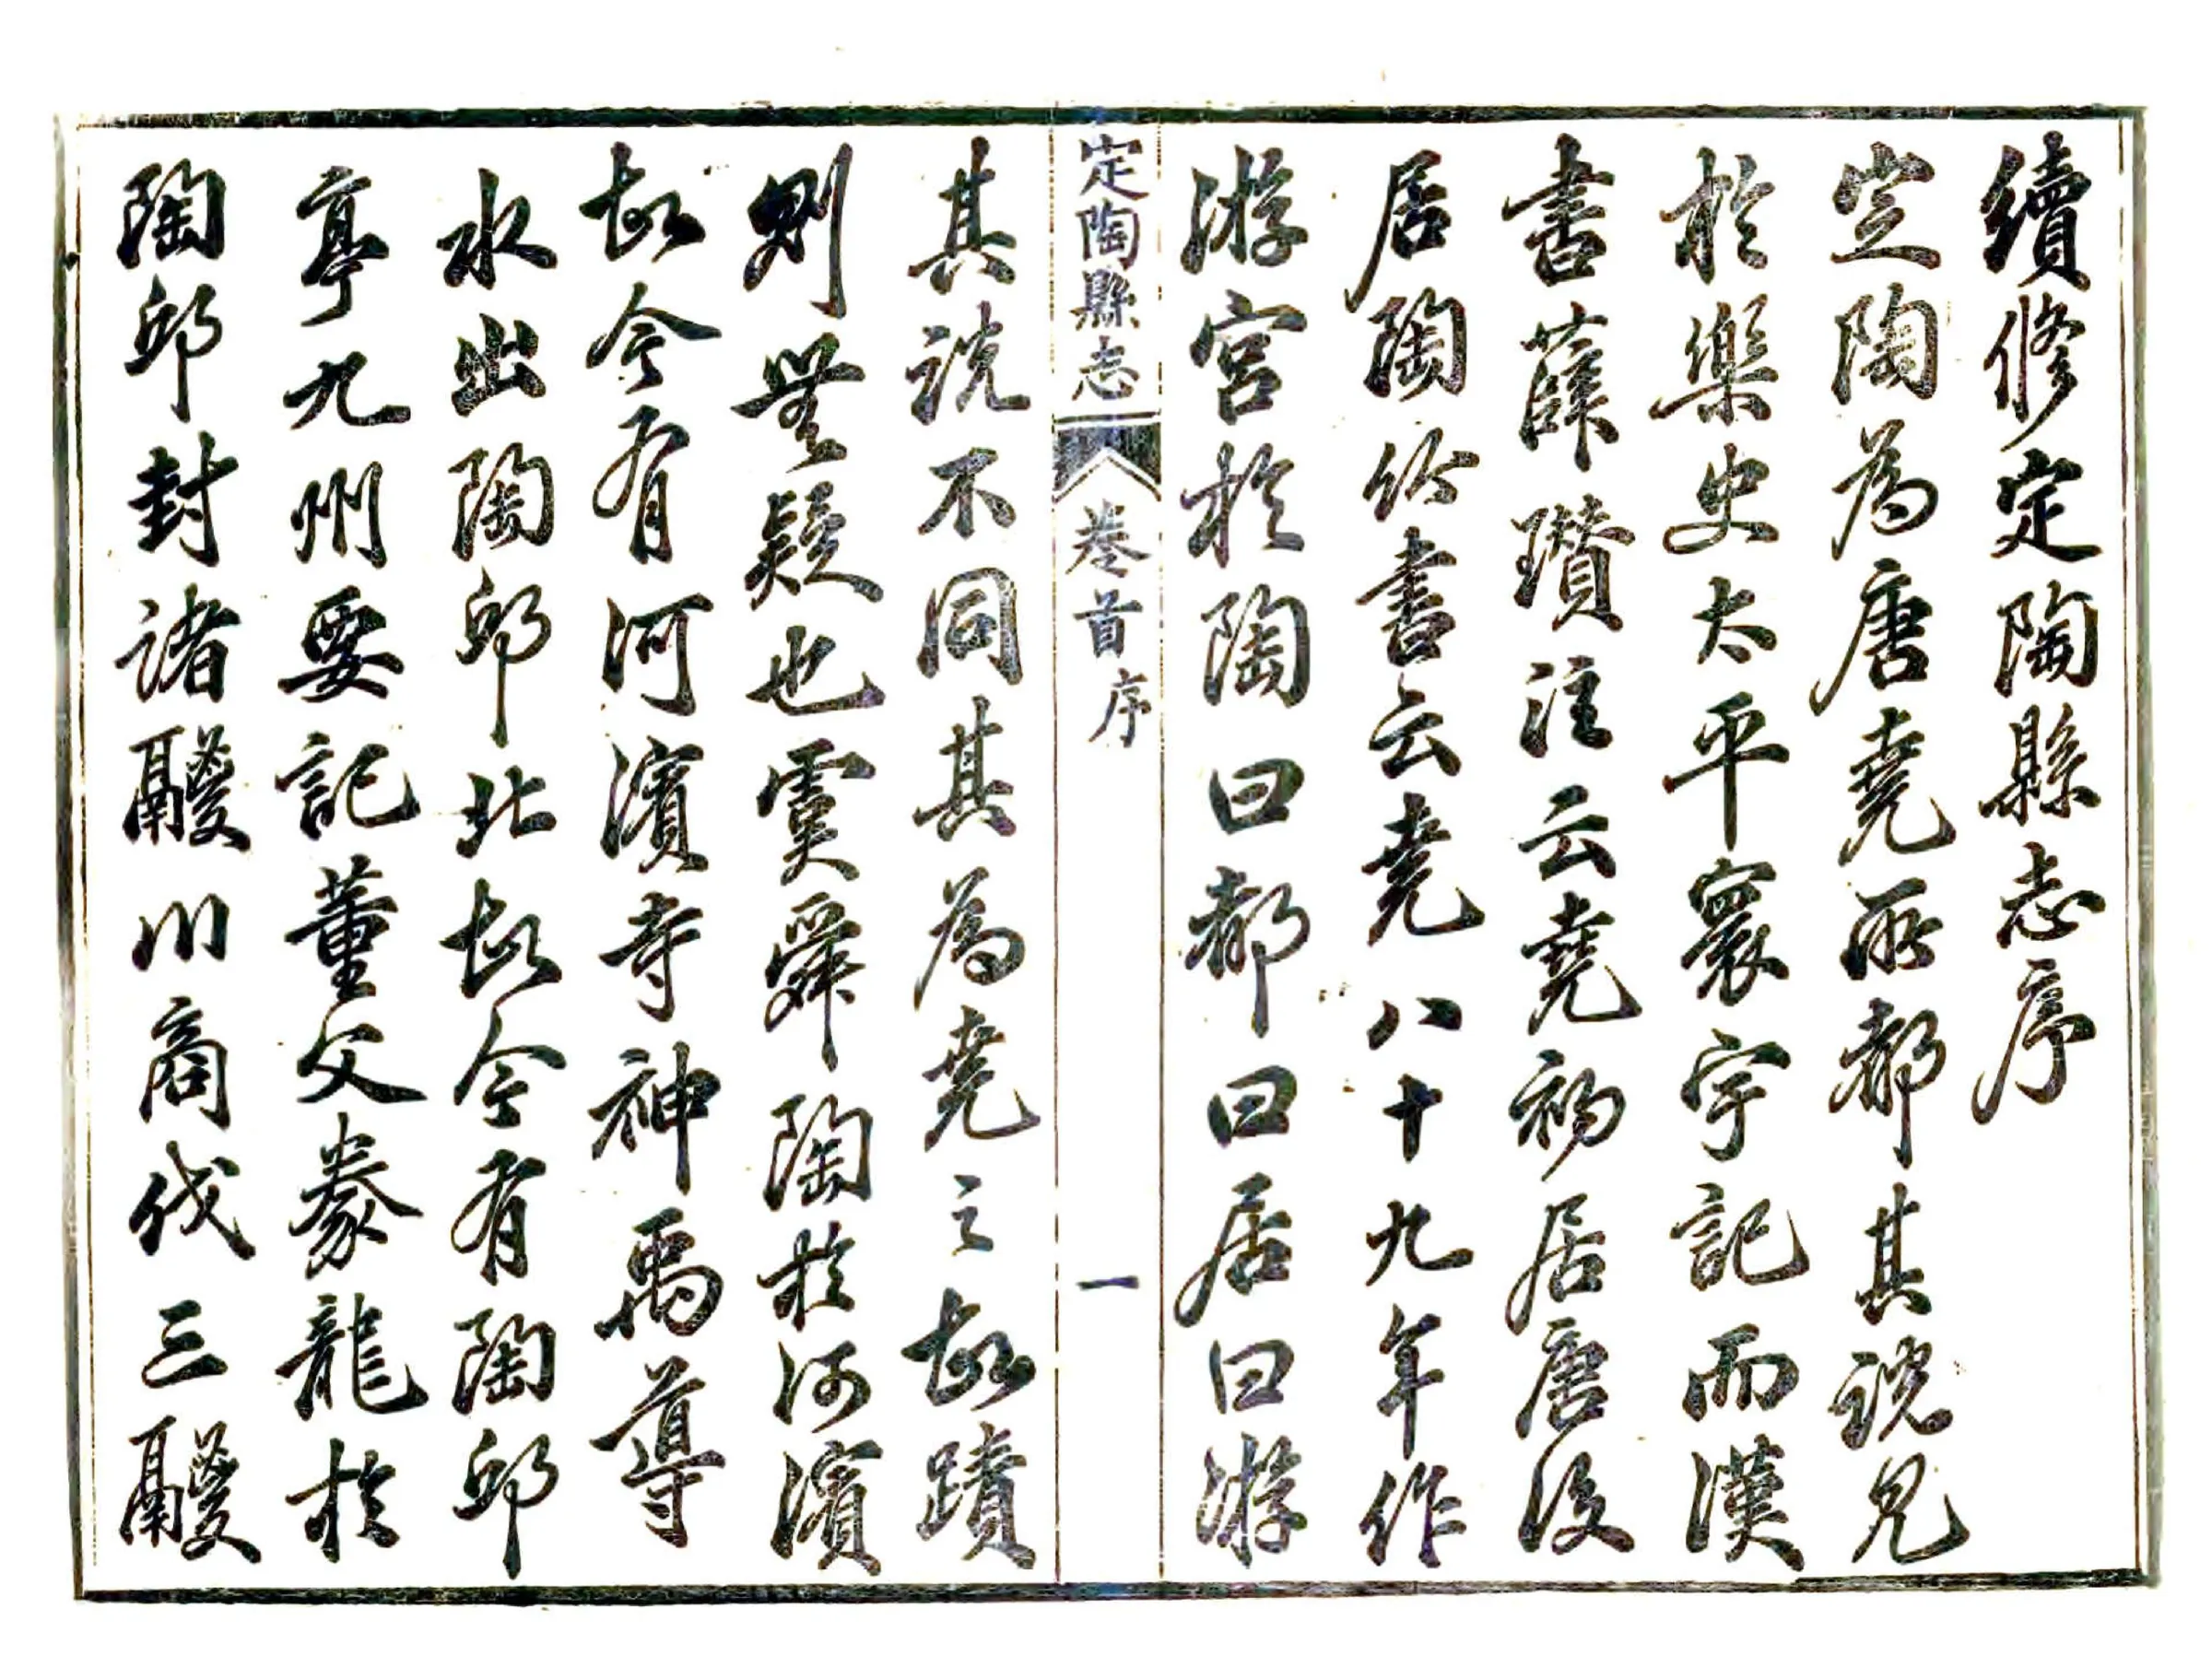 續修定陶縣志序
定陶為唐堯所都其說見
於樂史太平寰宇記而漢
書薛瓚注云堯初居唐後
居陶竹書云堯八十九年作
游宮於陶曰都曰居曰游
定陶縣志 卷首 序 一
其說不同其為堯之故蹟
則無疑也虞舜陶於河濱
故今有河濱寺神禹導
水出陶邱北故今有陶邱
亭九州要記董父豢龍於
陶邱封諸鬷川商伐三鬷